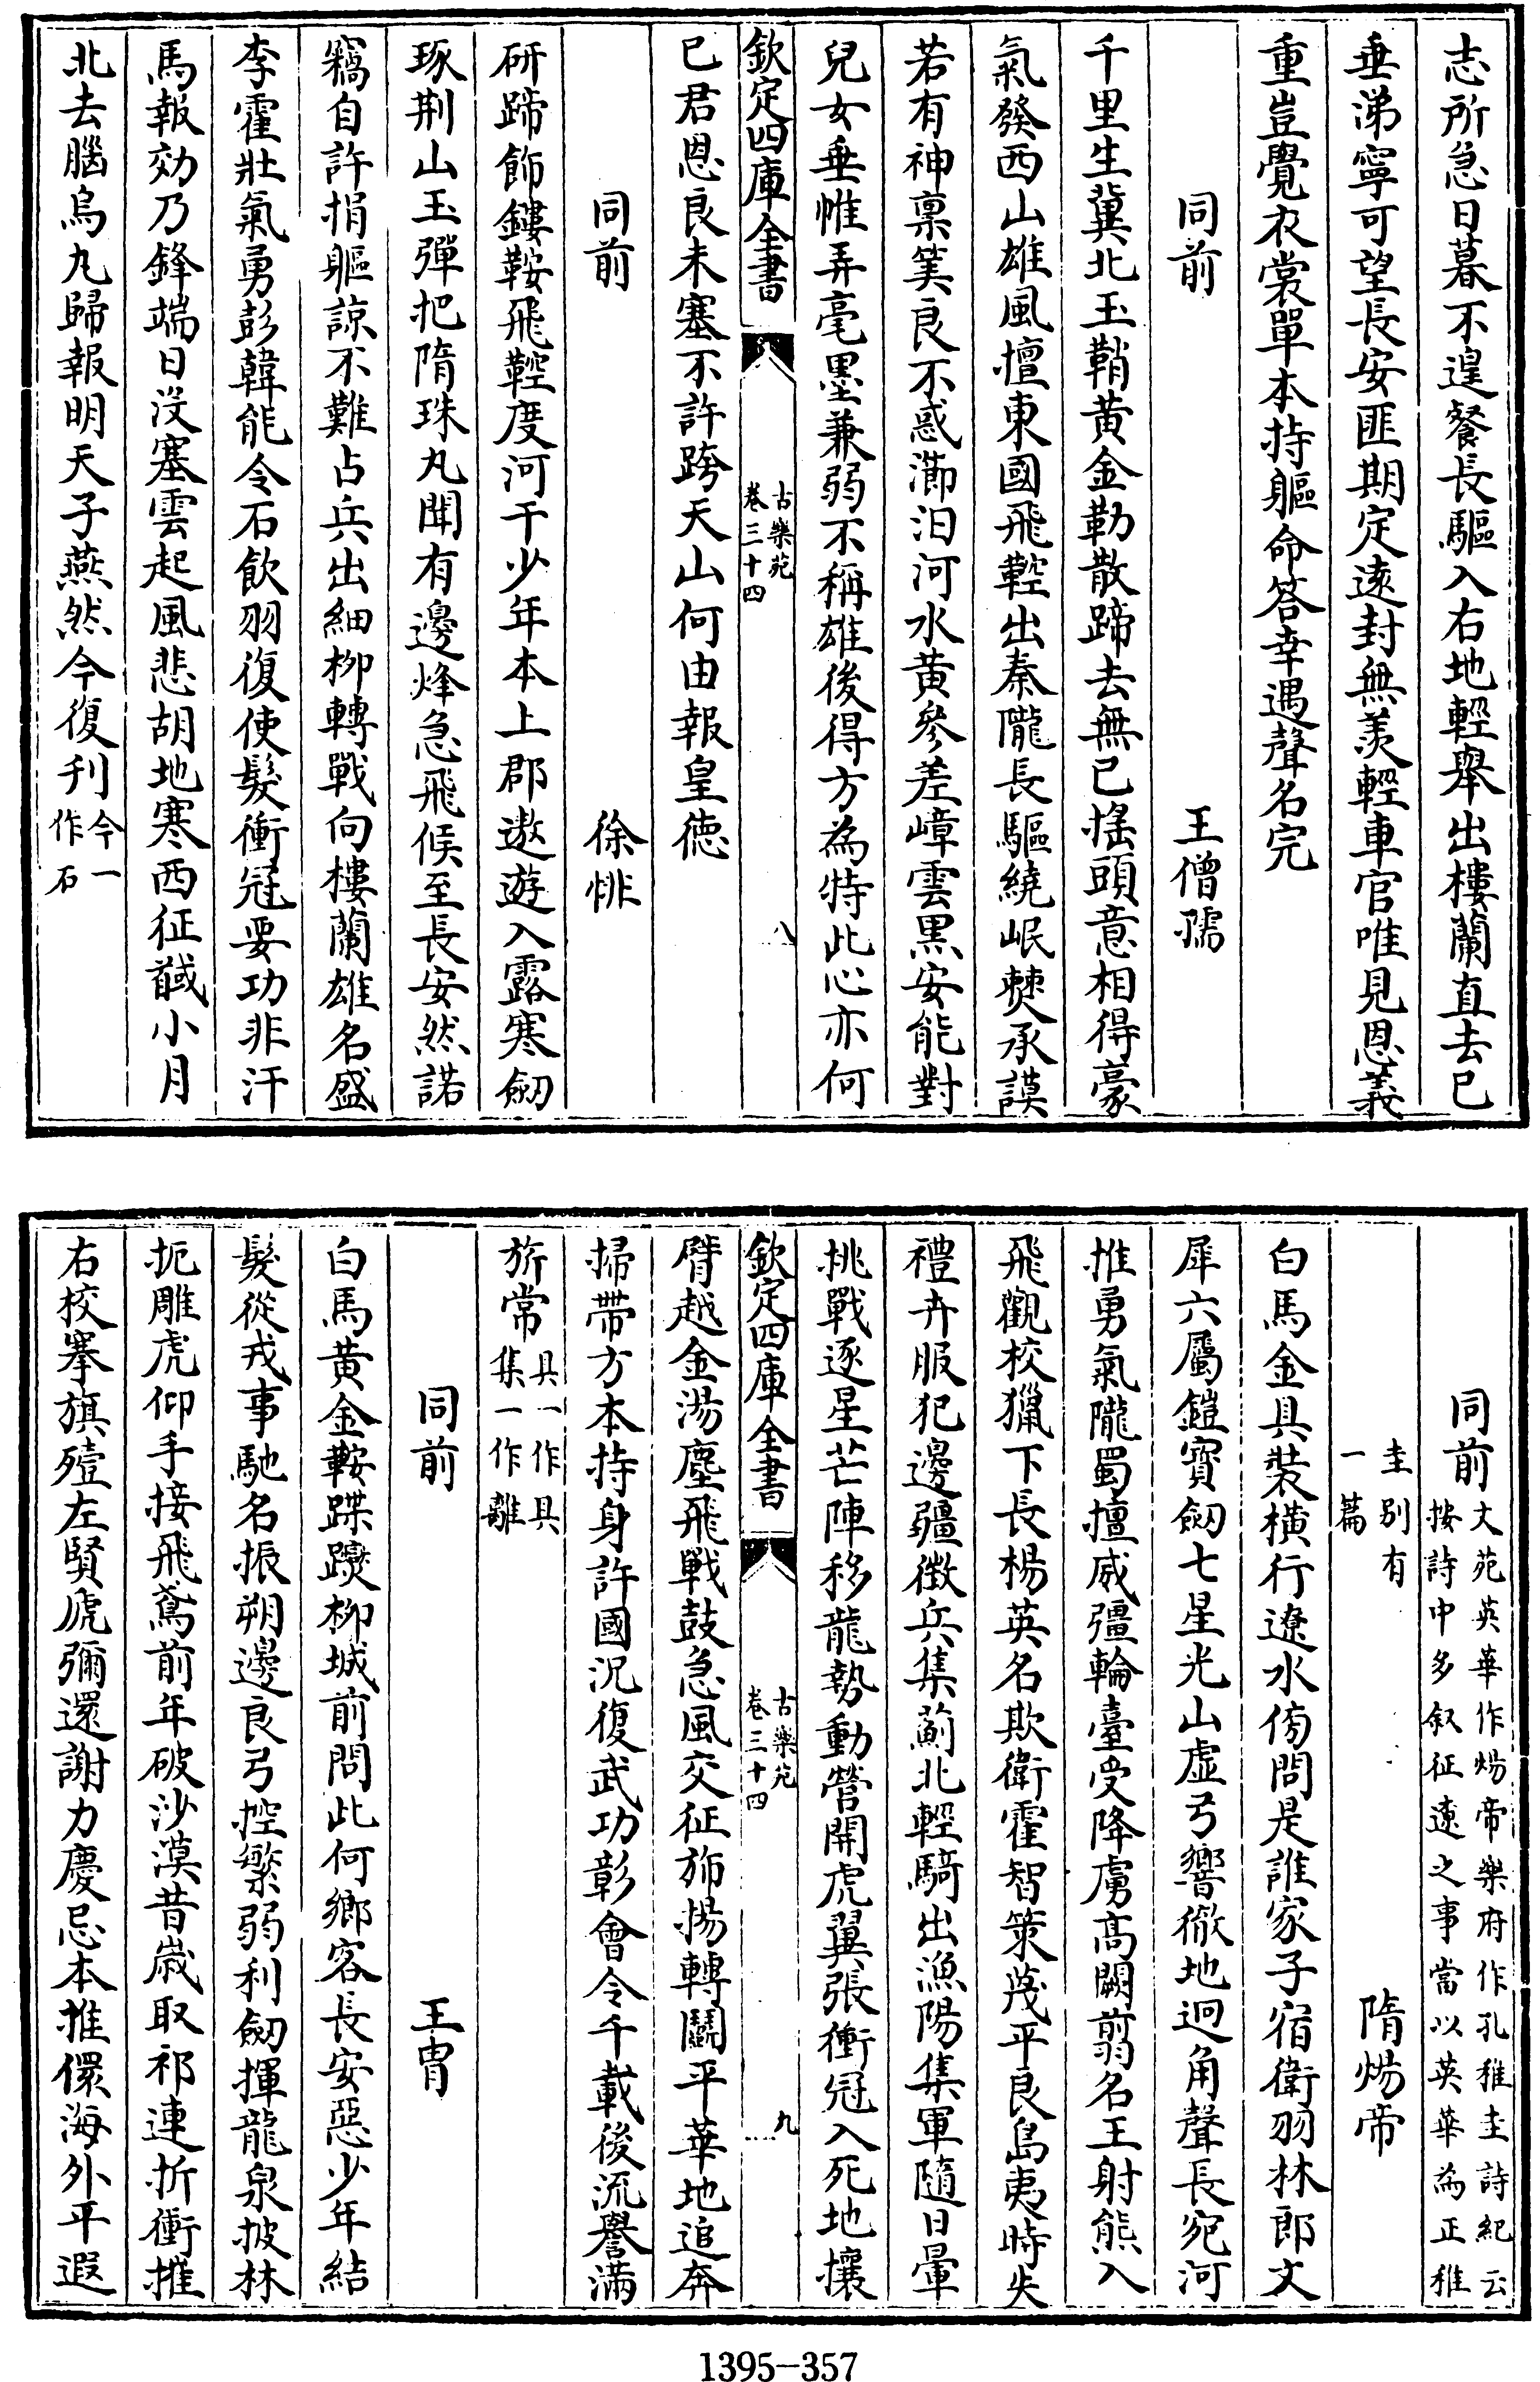 志所急日暮不遑餐長驅入右地輕舉出樓蘭直去已
垂涕寧可望長安匪期定遠封無羨輕車官唯見恩義
重豈覺衣裳單本持軀命答幸遇聲名完
同前 王僧孺
千里生冀北玉鞘黄金勒散蹄去無已揺頭意相得豪
氣發西山雄風擅東國飛鞚出秦隴長驅繞岷僰承謨
若有神禀筭良不惑㶟汨河水黄參差嶂雲黒安能對
兒女垂帷弄毫墨兼弱不稱雄後得方為特此心亦何
欽定四庫全書 古樂苑 卷三十四 八
已君恩良未塞不許跨天山何由報皇徳
同前 徐悱
研蹄飾鏤鞍飛鞚度河干少年本上郡遨遊入露寒劒
琢荆山玉彈把隋珠丸聞有邊烽急飛候至長安然諾
竊自許捐軀諒不難占兵出細柳轉戰向樓蘭雄名盛
李霍壯氣勇彭韓能令石飲羽復使髮衝冠要功非汗
馬報効乃鋒端日没塞雲起風悲胡地寒西征馘小月
北去腦烏丸歸報明天子燕然今復刋今一作石
同前文苑英華作煬帝樂府作孔稚圭詩紀云按詩中多叙征遼之事當以英華為正稚
圭别有一篇 隋煬帝
白馬金具装横行遼水傍問是誰家子宿衛羽林郎文
犀六屬鎧寳劒七星光山虚弓響徹地迥角聲長宛河
推勇氣隴蜀擅威彊輪臺受降虜髙闕翦名王射熊入
飛觀校獵下長楊英名欺衛霍智策蔑平良島夷時失
禮卉服犯邊疆徴兵集薊北輕騎出漁陽集軍隨日暈
挑戰逐星芒陣移龍勢動營開虎翼張衝冠入死地攘
欽定四庫全書 古樂苑 卷三十四 九
臂越金湯塵飛戰鼓急風交征斾揚轉鬭平華地追奔
掃帶方本持身許國况復武功彰會令千載後流譽滿
旂常具一作具集一作離
同前 王胄
白馬黄金鞍蹀躞柳城前問此何鄉客長安惡少年結
髮從戎事馳名振朔邊良弓控繁弱利劒揮龍泉披林
扼雕虎仰手接飛鳶前年破沙漠昔嵗取祁連折衝摧
右校搴旗殪左賢虒彌還謝力慶忌本推儇海外平遐
1395-357